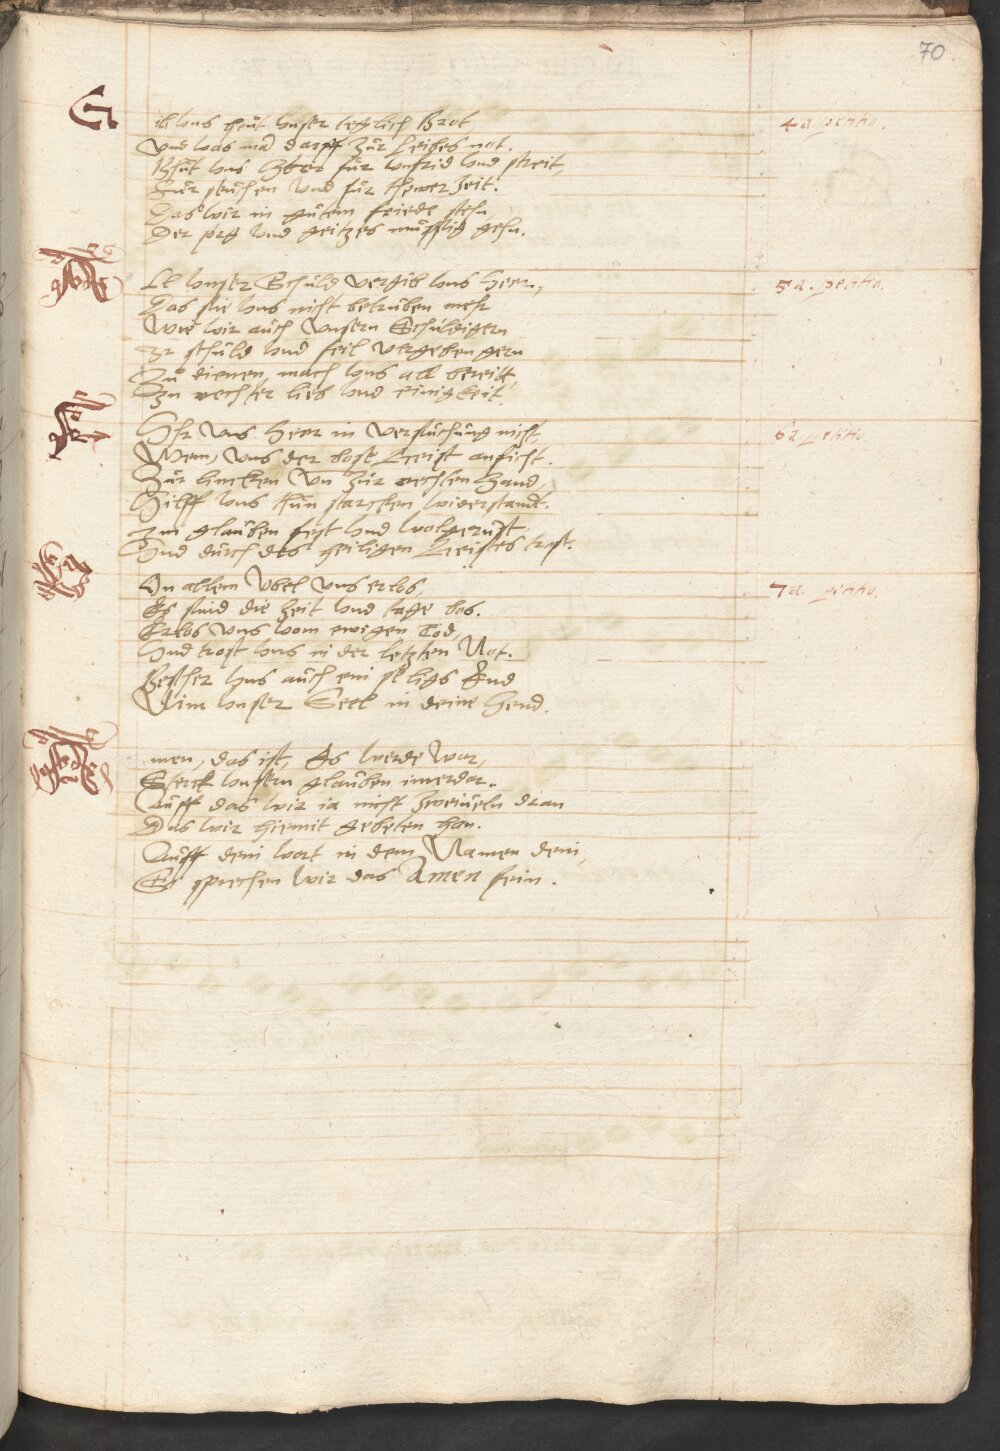 70
G ib vns heut vnser teglich Brot 4a petitio.
Vnd was mā darff zür Leibes not.
Bhüt vns Herr für vnfrid vnd streit,
Für seüchen vnd für thewer Zeit.
Das wir in gütem friede stehn
Der sorg vnd geitzes müssig gehn.
A Ll vnser Schüld vergib vns Herr, 5a. petitio.
Das sie vns nicht betrüben mehr
Wie wir aüch vnsern Schüldigern
Ir schüld vnd feil vergeben gern
Zü dienen, mach vns all bereitt,
In rechter lieb vnd Einigkeit.
F Hr vns Herr in versüchüng nicht, 6a petitio,
Wenn, vns der bose Geist anficht.
Zür lincken vn̄ zür rechten Hand,
Hilff vns thün starcken widerstandt.
Im glaüben fest vnd wolgerüst
Vnd dürch des heiligen Geistes trost.
V On allem Vbel vns erlos, 7a. petitio,
Es sind die Zeit vnd tage bos.
Erlos vns vom ewigen Tod,
Vnd trost vns in der letzten Not.
Bescher vns aüch ein seligs End
Nim vnser Seel in deine Hend.
A men, das ist, Es werde war,
Sterck vnsern glaüben imerdar.
Aüff das wir ia nicht zweiüeln dran
Das wir hiemit gebeten han.
Aüff dein wort in dem Namen dein,
So sprechen wir das Amen fein.